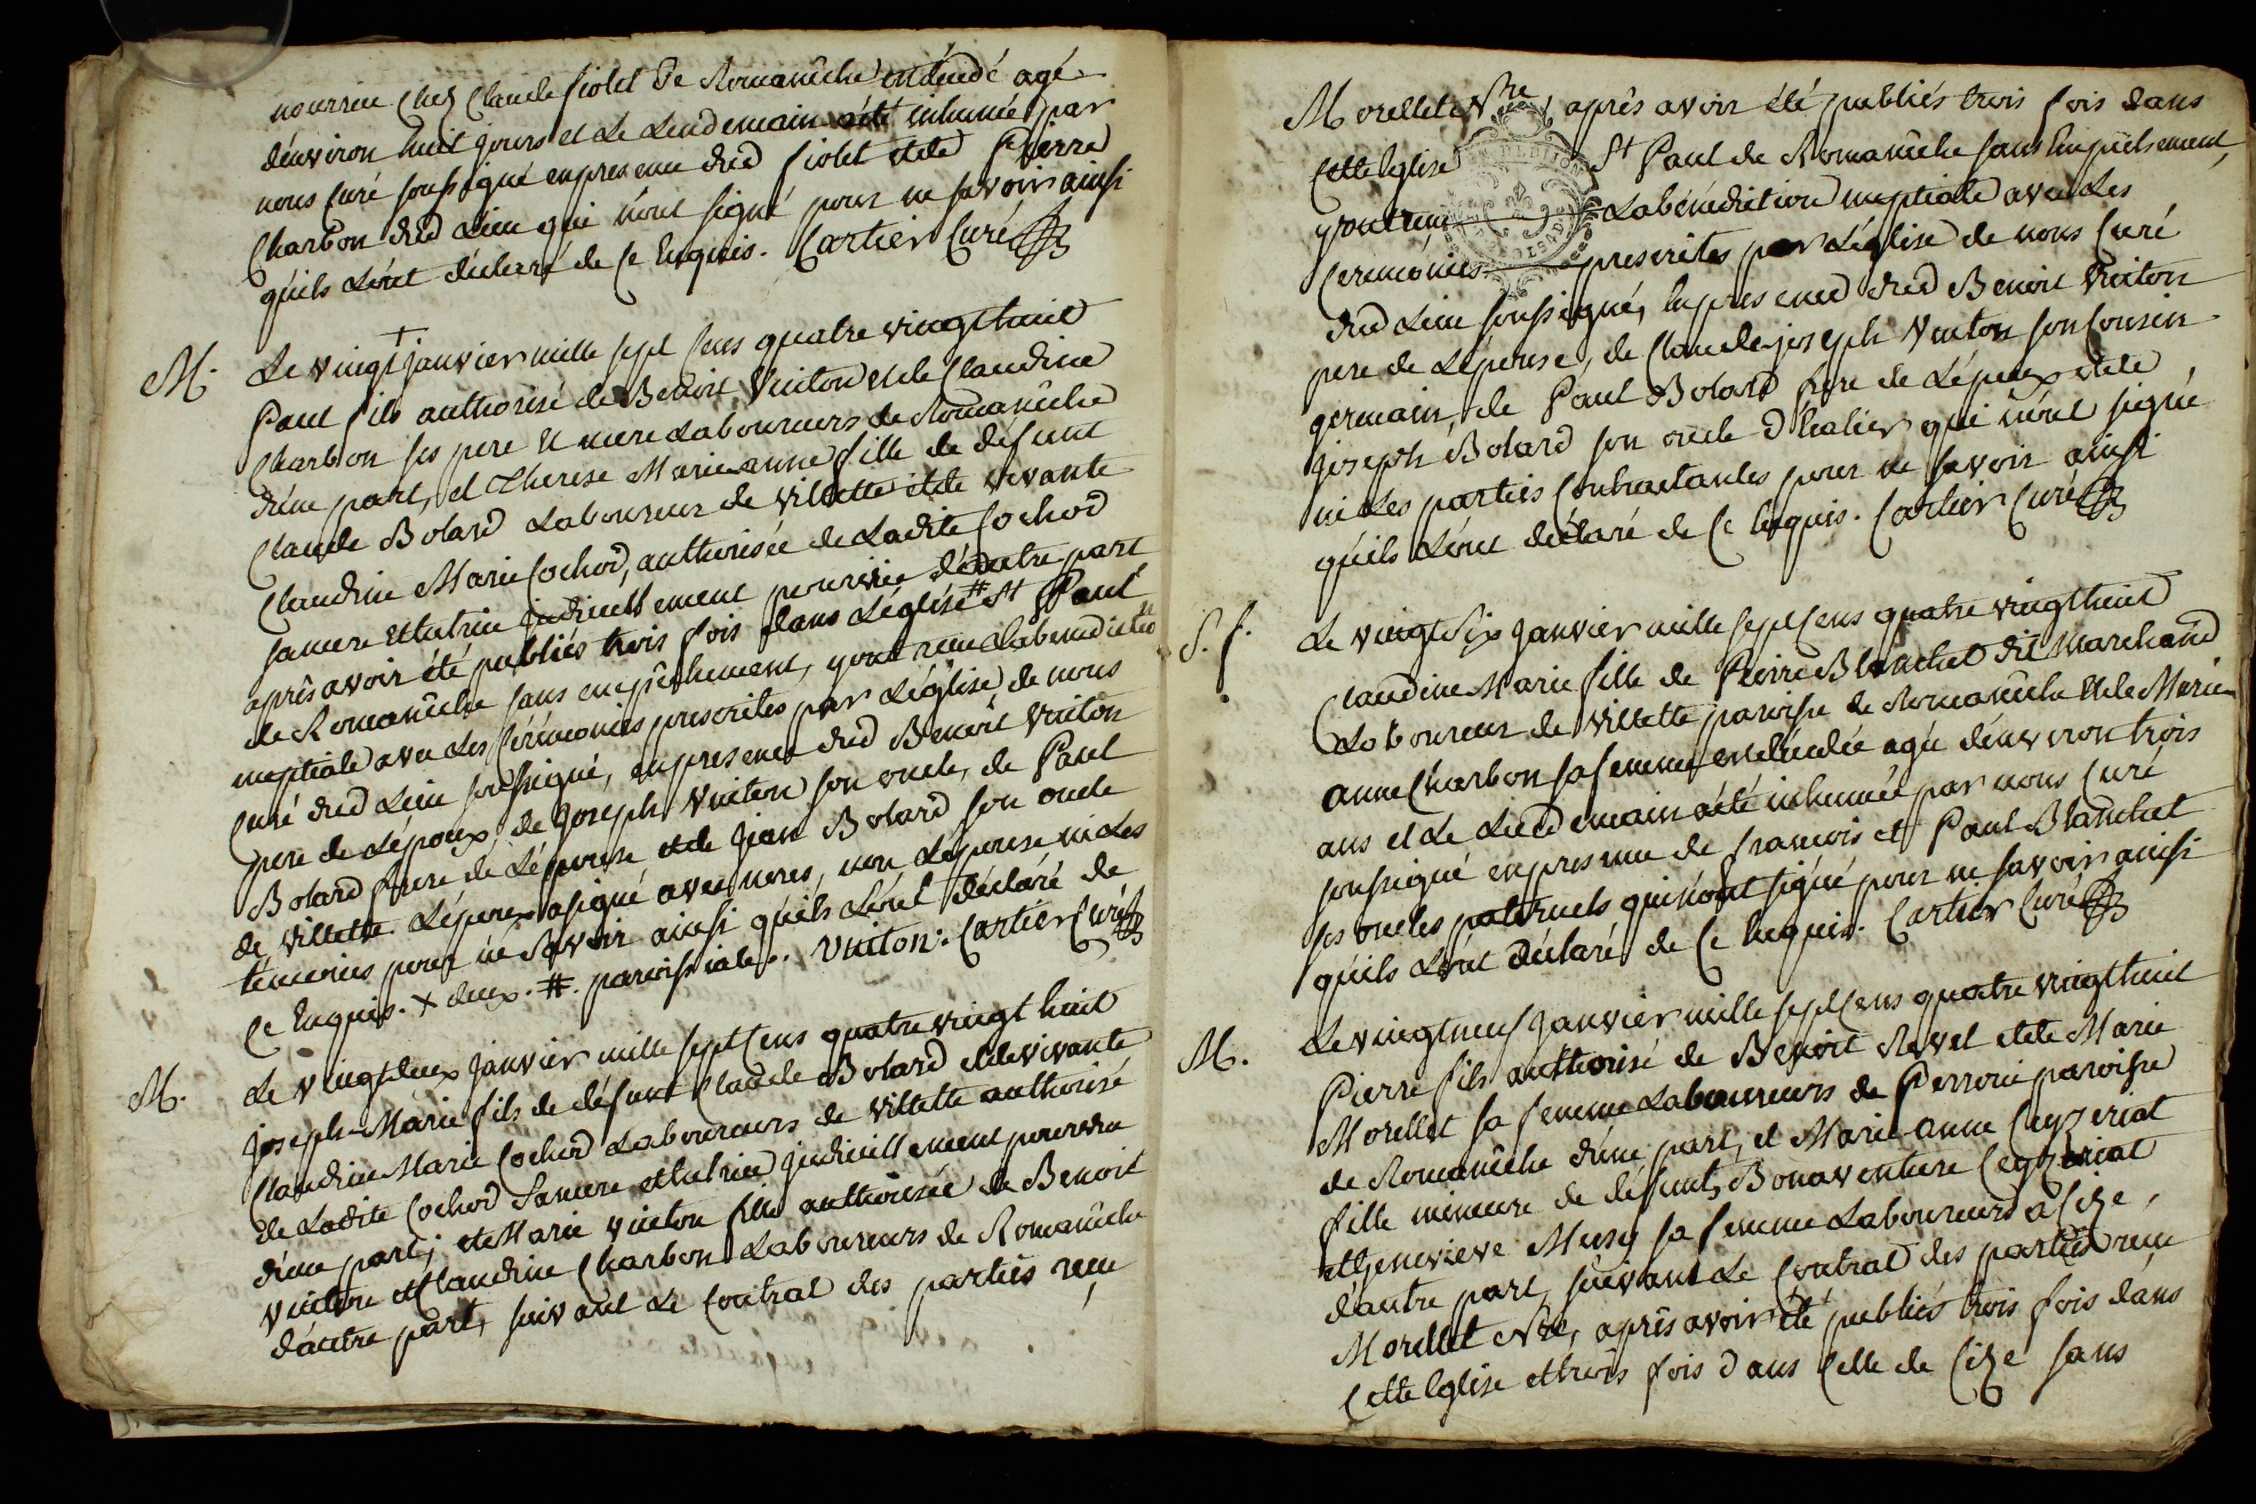 nourrice chez Claude fiolet de Romanêche en décédé agé
d'environ huit jours et Le Lendemain a été inhumé par
nous Curé soussigné en presence dud fiolet et de Pierre
Charbon dud Lieu qui n'ont signé pour ne savoir ainsi
qu'ils L'ont déclaré de Ce Enquis. Cartier Curé
M. Le vingt + janvier mille sept Cens quatre vingt huit
Paul fils authorisé de Benoit Vuiton et de Claudine
Charbon ses pere et mere Laboureurs de Romanêche
d'une part, et Therese Marie anne fille de défunt
Claude Bolard Laboureur de Villette et de vivante
Claudine Marie Cochod, authorisée de Ladite Cochod
sa mere et tutrice judiciellement pourvue d'autre part
après avoir été publiés trois fois dans L'église # St Paul
de Romanêche sans empêchement, y ont reçu La benediction
nuptiale avec Les Cérémonies prescrites par L'église de nous
Curé dud Lieu soussigné, en presence dud Benoit Vuiton
pere de L'époux, de Joseph Vuiton son oncle, de Paul
Bolard frere de L'épouse et de Jean Bolard son oncle
de Villette. L'époux a signé avec nous, non L'épouse ni Les
temoins pour ne Savoir ainsi qu'ils L'ont déclaré de
Ce Enquis. + deux. #. paroissiale. Vuiton. Cartier Curé
M. Le vingt deux janvier mille sept Cens quatre vingt huit
Joseph-Marie fils de défunt Claude Bolard et de vivante
Claudine Marie Cochod Laboureurs de Villette authorisé
de Ladite Cochod Sa mere et tutrice judiciellement pourvu
d'une part; et Marie Vuiton fille authorisée de Benoit
Vuiton et Claudine Charbon Laboureurs de Romanêche
d'autre part, suivant Le Contrat des parties reçu
Morellet Nre, après avoir été publiés trois fois dans
Cette Eglise St Paul de Romanêche sans Empêchement,
y ont reçu La bénédiction nuptiale avec Les
Ceremonies prescrites par L'église de nous Curé
dud Lieu soussigné, En presence dud Benoit Vuiton
pere de L'épouse, de Claude joseph Vuiton son Cousin
germain, de Paul Bolard frere de L'époux et de
Joseph Bolard son oncle d'halier qui n'ont signé
ni Les parties Contractantes pour ne savoir ainsi
qu'ils L'ont déclaré de Ce Enquis. Cartier Curé
S. f. Le vingt Six janvier mille sept Cens quatre vingt huit
Claudine Marie fille de Pierre Blanchet dit Marchand
Laboureur de Villette paroisse de Romanêche et de Marie
anne Charbon sa femme en décédée agée d'environ trois
ans et Le Lendemain a été inhumée par nous Curé
soussigné en presence de francois et Paul Blanchet
ses oncles paternels qui n'ont signé pour ne savoir ainsi
qu'ils L'ont déclaré de Ce Enquis. Cartier Curé
M. Le vingt neuf janvier mille sept Cens quatre vingt huit
Pierre fils authorisé de Benoit Revel et de Marie
Morellet sa femme Laboureurs de Perroui paroisse
de Romanêche d'une part, et Marie-anne Ceyzeriat
fille mineure de défunts Bonaventure Ceyzeriat
et Genevieve Musy sa femme Laboureurs à Cize,
d'autre part, suivant Le Contrat des parties reçu
Morellet Nre, après avoir été publiés trois fois dans
Cette Eglise et trois fois dans Celle de Cize sans